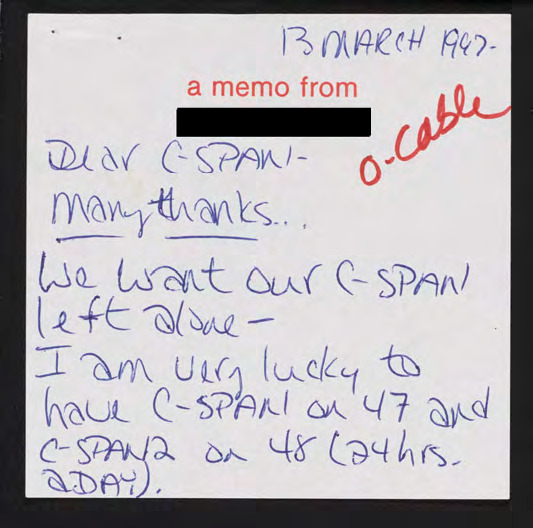 13 MARCH 1997-
a memo from
o-cable
Dear C-SPAN1-
Many thanks...
We want our C-SPAN1
left alone-
I am very lucky to
have C-SPAN1 on 47 and
C-SPAN2 on 48 (24hrs.
aDAY).